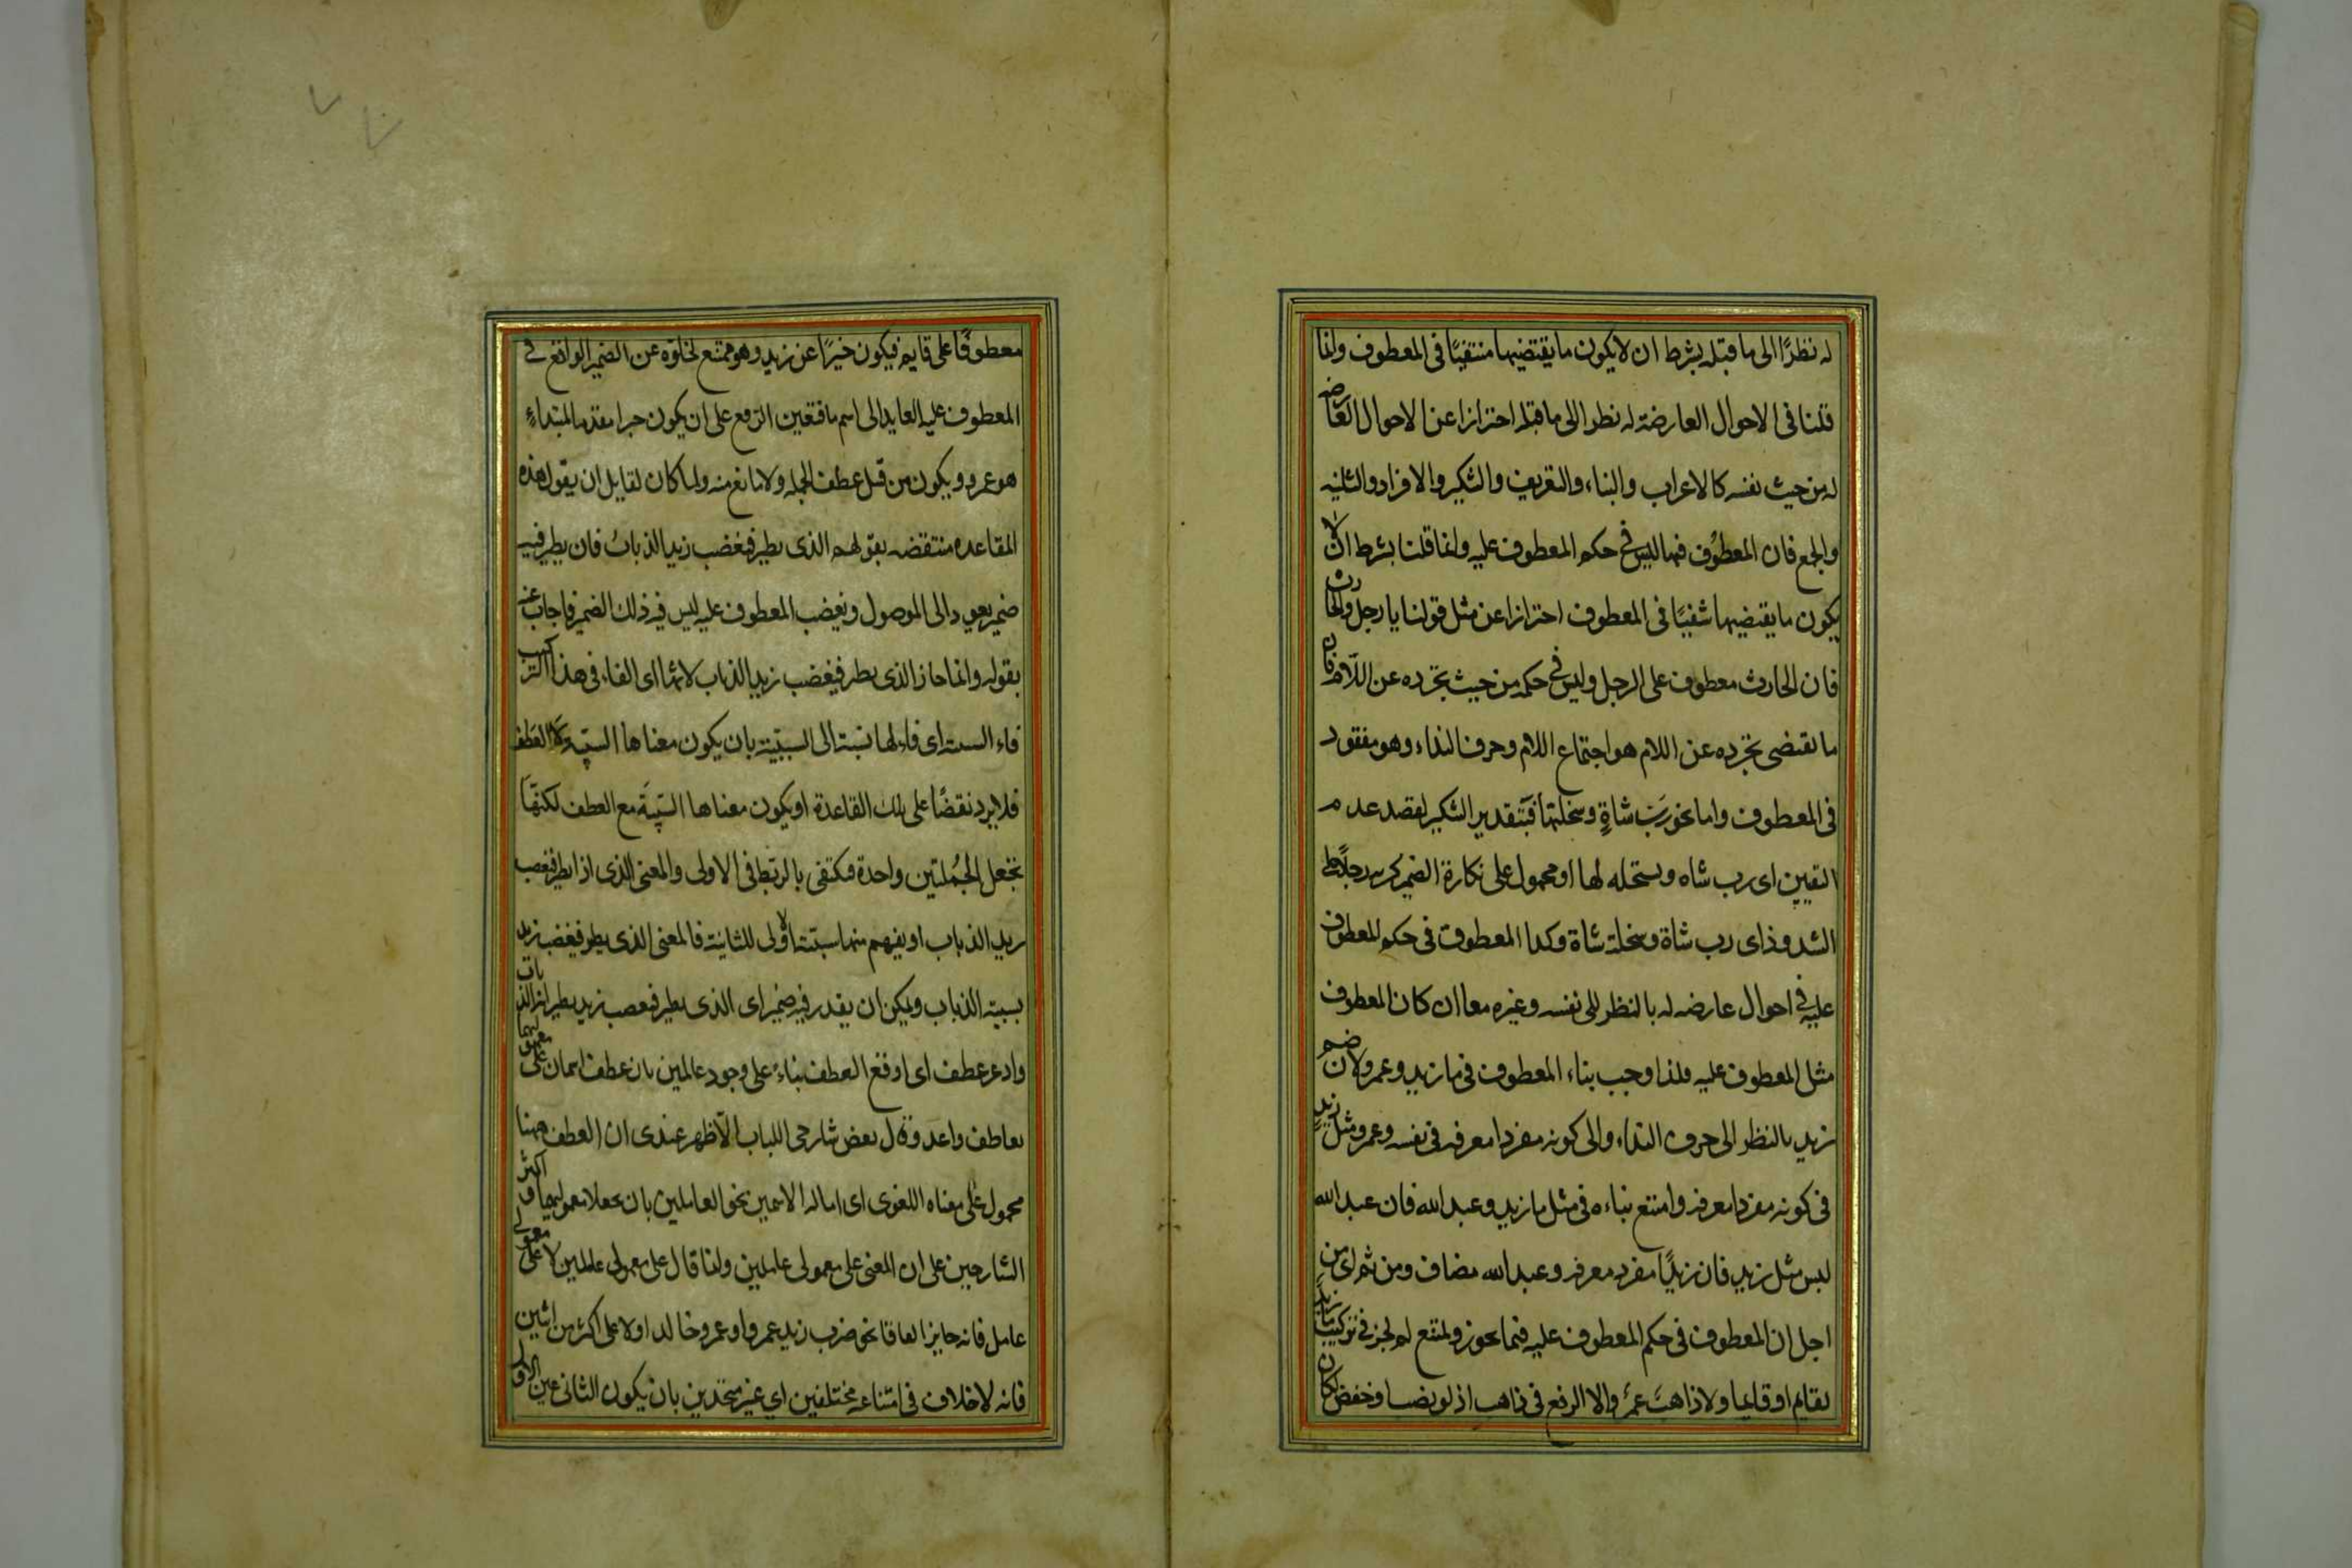 له نظرًا الى ما قبله بشرط ان لا يكون ما يقتضيها منتفيًا فى المعطوف وانما
قلنا فى الاحوال العارضة له نظرا الى ما قبله احترازا عن الاحوال العارضه
له من حيث نفسه كالاعراب والبناء والتعريف والتنكير والافراد والتثنيه
والجمع فان المعطوف فيها ليس فى حكم المعطوف عليه وانما قلنا بشرط ان لا
يكون ما يقتضيها منتفيًا فى المعطوف احترازا عن مثل قولنا يا رجل والحارث
فان الحارث معطوف على الرجل وليس فى حكمه من حيث تجرده عن اللام فان
ما يقتضى تجرده عن اللام هو اجتماع اللام وحرف النداء وهو مفقود
فى المعطوف واما نحو رب شاةٍ وسخلتها فبتقدير التنكير لقصد عدم
التعيين اى رب شاه وسخله لها او محمول على نكارة الضمير كربه رجلا على
الشذوذ اى رب شاة وسخلة شاة وكذا المعطوف فى حكم المعطوف
عليه فى احوال عارضه له بالنظر الى نفسه وغيره معا ان كان المعطوف
مثل المعطوف عليه فلذا وجب بناء المعطوف فى يا زيد وعمرو لان ضم
زيد بالنظر الى حرف النداء والى كونه مفردا معرفه فى نفسه وعمرو مثل زيدٍ
فى كونه مفردا معرفه وامتنع بناءه فى مثل يا زيد وعبد الله فان عبد الله
ليس مثل زيد فان زيدًا مفرد معرفه وعبد الله مضاف ومن ثم اى من
اجل ان المعطوف فى حكم المعطوف عليه فيما يجوز ويمتنع لم يجز فى تركيب ما زيدٌ
بقايم او قايما ولا ذاهبَ عمرٌ والا الرفع فى ذاهب اذ لو نصب او خفض لكان
معطوفًا على قايم فيكون خبرًا عن زيد وهو ممتنع لخلوّه عن الضمير الواقع فى
المعطوف عليه العايد الى اسم ما فتعين الرفع على ان يكون خبرا مقدما لمبتداءٍ
هو عمرو ويكون من قبل عطف الجمله ولا مانع منه ولما كان لقايل ان يقول هذه
القاعده منتقضه بقولهم الذى يطير فيغضب زيد الذباب فان يطير فيه
ضمير يعود الى الموصول ويغضب المعطوف عليه ليس فيه ذلك الضمير فاجاب عنه
بقوله وانما جاز الذى يطير فيغضب زيد الذباب لانها اى الفاء فى هذا التركيب
فاء السببية اى فاء لها نسبة الى السببيّة بان يكون معناها السببية لا العطف
فلا يرد نقضًا على تلك القاعدة او يكون معناها السببيةَ مع العطف لكنها
تجعل الجُملتين واحدة فيكتفى بالربط فى الاولى والمعنى الذى اذا يطير فيغضب
زيد الذباب او يفهم منها سببية الاولى للثانية فالمعنى الذى يطير فيغضب زيد
بسببه الذباب ويمكن ان يقدر فيه ضمير اى الذى يطير فيغضب زيد بطيرانه الذباب
واذا عطف اى اوقع العطف بناءً على وجود عاملين بان عطف اسمان على معموليهما
بعاطف واحد وقال بعض شارحى اللباب الاظهر عندى ان العطف ههنا
محمول على معناه اللغوى اى امالة الاسمين نحو العاملين بان يجعلا معموليهما واكثر
الشارحين على ان المعنى على معمولى عاملين وانما قال على معمولى عاملين لا على معمولى
عامل فانه جايز اتفاقا نحو ضرب زيد عمروا وعمرو خالدا ولا على اكثر من اثنين
فانه لا خلاف فى امتناعه مختلفين اى غير متحدين بان يكون الثانى عين الاول